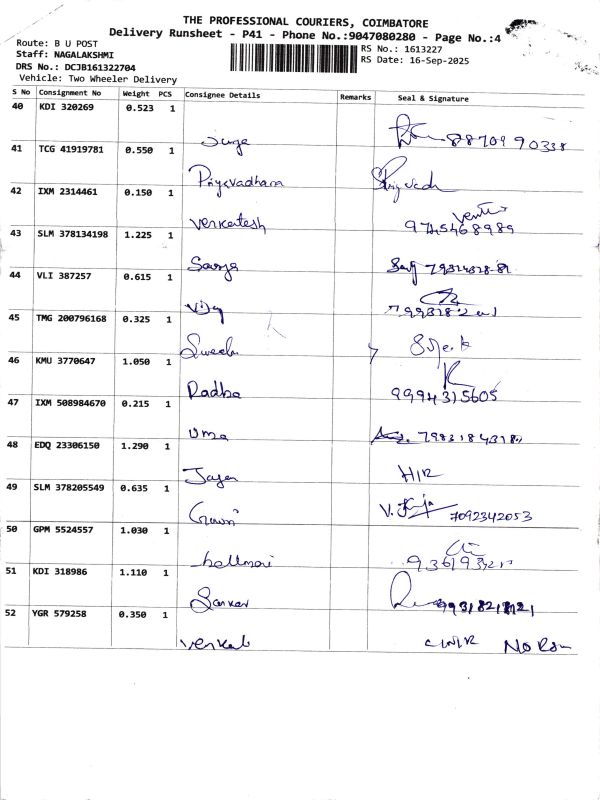 THE PROFESSIONAL COURIERS, COIMBATORE
Delivery Runsheet - P41 - Phone No.:9047080280 - Page No.:4
Route: B U POST
Staff: NAGALAKSHMI
DRS No.: DCJB161322704
Vehicle: Two Wheeler Delivery
RS No.: 1613227
RS Date: 16-Sep-2025
S No Consignment No Weight PCS Consignee Details Remarks Seal & Signature
40 KDI 320269 0.523 1
Surya 8870990338
41 TCG 41919781 0.550 1
Priyavadhana
42 IXM 2314461 0.150 1
Venkatesh 9745468989
43 SLM 378134198 1.225 1
Surya
44 VLI 387257 0.615 1
Vijay
45 TMG 200796168 0.325 1
46 KMU 3770647 1.050 1
Radha 9994315605
47 IXM 508984670 0.215 1
Uma
48 EDQ 23306150 1.290 1
49 SLM 378205549 0.635 1
Gowri 7092342053
50 GPM 5524557 1.030 1
51 KDI 318986 1.110 1
Sankar
52 YGR 579258 0.350 1
Venkat